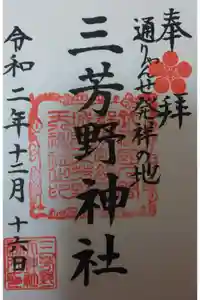 奉拝
通りゃんせ発祥の地
三芳野神社
令和二年十二月十六日